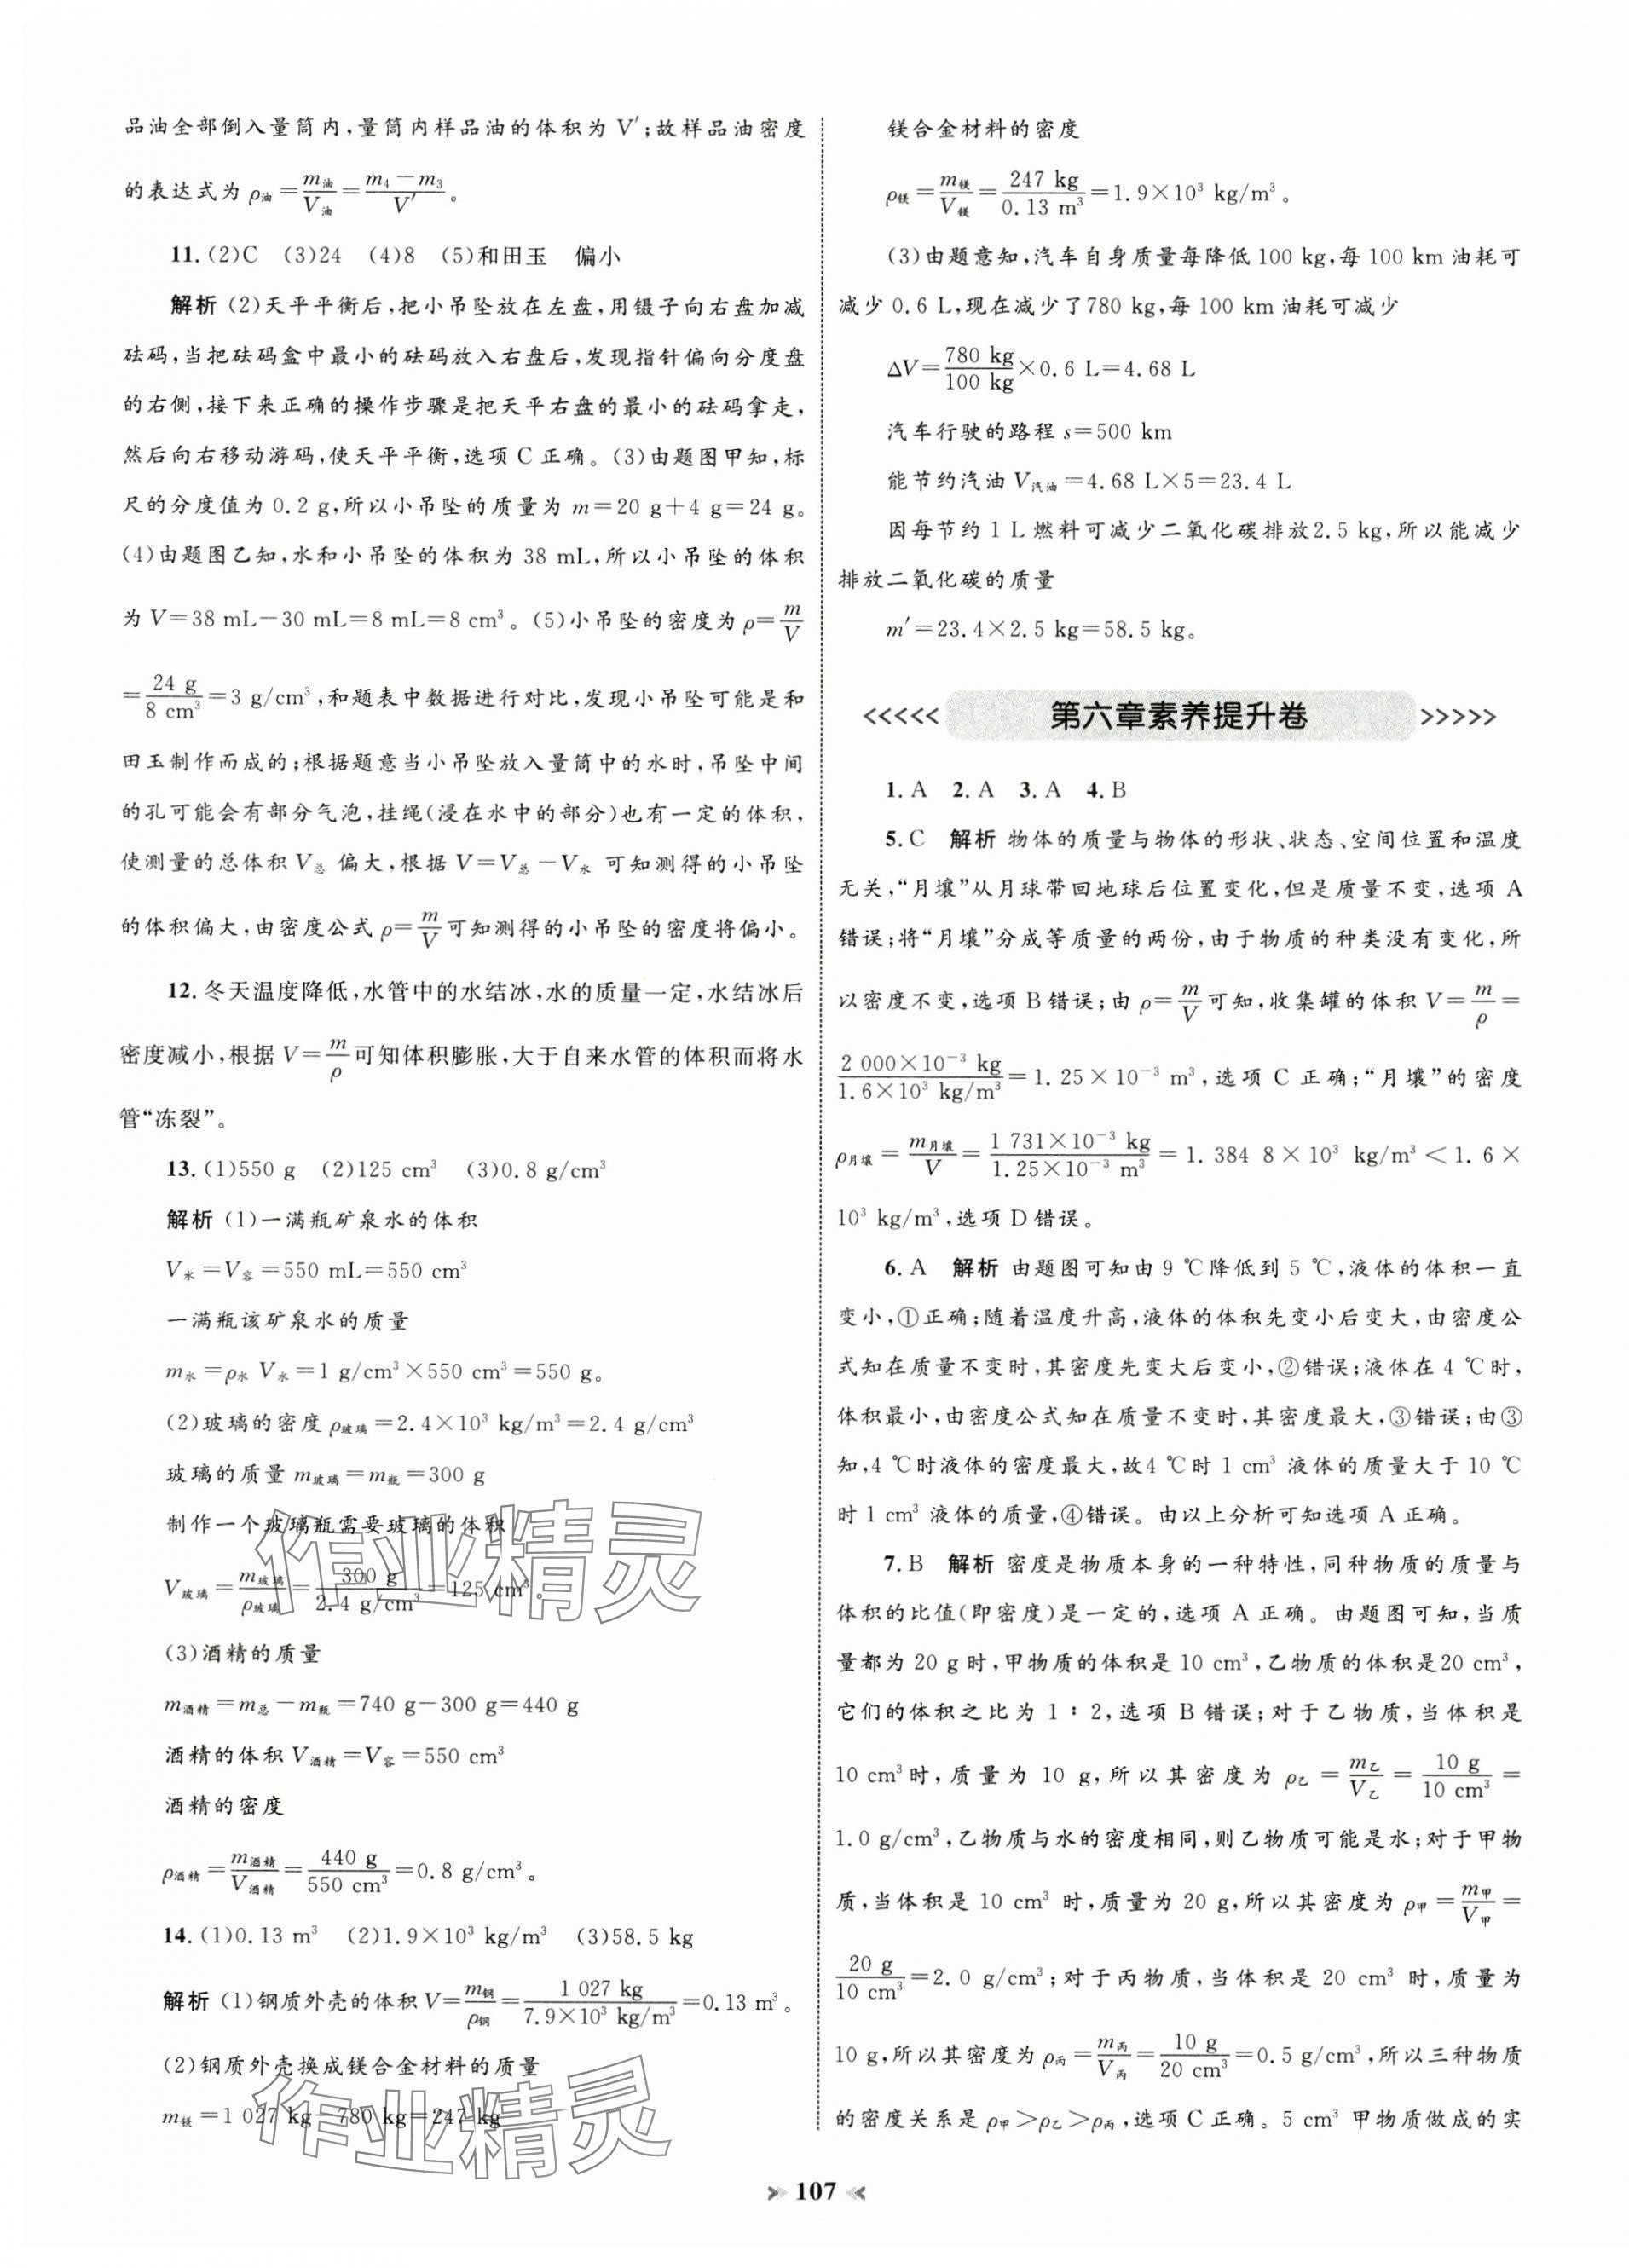 品油全部倒入量筒内,量筒内样品油的体积为 V′;故样品油密度
的表达式为 ρ油=m油/V油=(m₄−m₃)/V′。
11.(2)C (3)24 (4)8 (5)和田玉 偏小
解析 (2)天平平衡后,把小吊坠放在左盘,用镊子向右盘加减
砝码,当把砝码盒中最小的砝码放入右盘后,发现指针偏向分度盘
的右侧,接下来正确的操作步骤是把天平右盘的最小的砝码拿走,
然后向右移动游码,使天平平衡,选项C正确。(3)由题图甲知,标
尺的分度值为 0.2 g,所以小吊坠的质量为 m=20 g+4 g=24 g。
(4)由题图乙知,水和小吊坠的体积为 38 mL,所以小吊坠的体积
为 V=38 mL−30 mL=8 mL=8 cm³。(5)小吊坠的密度为 ρ=m/V
=24 g/8 cm³=3 g/cm³,和题表中数据进行对比,发现小吊坠可能是和
田玉制作而成的;根据题意当小吊坠放入量筒中的水时,吊坠中间
的孔可能会有部分气泡,挂绳(浸在水中的部分)也有一定的体积,
使测量的总体积 V总 偏大,根据 V=V总−V水 可知测得的小吊坠
的体积偏大,由密度公式 ρ=m/V可知测得的小吊坠的密度将偏小。
12.冬天温度降低,水管中的水结冰,水的质量一定,水结冰后
密度减小,根据 V=m/ρ可知体积膨胀,大于自来水管的体积而将水
管“冻裂”。
13.(1)550 g (2)125 cm³ (3)0.8 g/cm³
解析 (1)一满瓶矿泉水的体积
V水=V容=550 mL=550 cm³
一满瓶该矿泉水的质量
m水=ρ水 V水=1 g/cm³×550 cm³=550 g。
(2)玻璃的密度 ρ玻璃=2.4×10³ kg/m³=2.4 g/cm³
玻璃的质量 m玻璃=m瓶=300 g
制作一个玻璃瓶需要玻璃的体积
V玻璃=m玻璃/ρ玻璃=300 g/2.4 g/cm³=125 cm³。
(3)酒精的质量
m酒精=m总−m瓶=740 g−300 g=440 g
酒精的体积 V酒精=V容=550 cm³
酒精的密度
ρ酒精=m酒精/V酒精=440 g/550 cm³=0.8 g/cm³。
14.(1)0.13 m³ (2)1.9×10³ kg/m³ (3)58.5 kg
解析 (1)钢质外壳的体积 V=m钢/ρ钢=1 027 kg/7.9×10³ kg/m³=0.13 m³。
(2)钢质外壳换成镁合金材料的质量
m镁=1 027 kg−780 kg=247 kg
镁合金材料的密度
ρ镁=m镁/V镁=247 kg/0.13 m³=1.9×10³ kg/m³。
(3)由题意知,汽车自身质量每降低100 kg,每100 km油耗可
减少0.6 L,现在减少了780 kg,每100 km油耗可减少
ΔV=780 kg/100 kg×0.6 L=4.68 L
汽车行驶的路程 s=500 km
能节约汽油 V汽油=4.68 L×5=23.4 L
因每节约 1 L 燃料可减少二氧化碳排放2.5 kg,所以能减少
排放二氧化碳的质量
m′=23.4×2.5 kg=58.5 kg。
<<<<< 第六章素养提升卷 >>>>>
1.A 2.A 3.A 4.B
5.C 解析 物体的质量与物体的形状、状态、空间位置和温度
无关,“月壤”从月球带回地球后位置变化,但是质量不变,选项 A
错误;将“月壤”分成等质量的两份,由于物质的种类没有变化,所
以密度不变,选项B错误;由 ρ=m/V可知,收集罐的体积 V=m/ρ=
2 000×10⁻³ kg/1.6×10³ kg/m³=1.25×10⁻³ m³,选项 C 正确;“月壤”的密度
ρ月壤=m月壤/V=1 731×10⁻³ kg/1.25×10⁻³ m³=1.384 8×10³ kg/m³<1.6×
10³ kg/m³,选项 D错误。
6.A 解析 由题图可知由 9 ℃降低到 5 ℃,液体的体积一直
变小,①正确;随着温度升高,液体的体积先变小后变大,由密度公
式知在质量不变时,其密度先变大后变小,②错误;液体在 4 ℃时,
体积最小,由密度公式知在质量不变时,其密度最大,③错误;由③
知,4 ℃时液体的密度最大,故4 ℃时 1 cm³ 液体的质量大于 10 ℃
时1 cm³ 液体的质量,④错误。由以上分析可知选项 A正确。
7.B 解析 密度是物质本身的一种特性,同种物质的质量与
体积的比值(即密度)是一定的,选项 A 正确。由题图可知,当质
量都为 20 g时,甲物质的体积是 10 cm³,乙物质的体积是20 cm³,
它们的体积之比为 1∶2,选项 B错误;对于乙物质,当体积是
10 cm³时,质量为 10 g,所以其密度为 ρ乙=m乙/V乙=10 g/10 cm³=
1.0 g/cm³,乙物质与水的密度相同,则乙物质可能是水;对于甲物
质,当体积是 10 cm³ 时,质量为 20 g,所以其密度为 ρ甲=m甲/V甲=
20 g/10 cm³=2.0 g/cm³;对于丙物质,当体积是 20 cm³ 时,质量为
10 g,所以其密度为 ρ丙=m丙/V丙=10 g/20 cm³=0.5 g/cm³,所以三种物质
的密度关系是 ρ甲>ρ乙>ρ丙,选项C正确。5 cm³ 甲物质做成的实
107
作业精灵
作业精灵